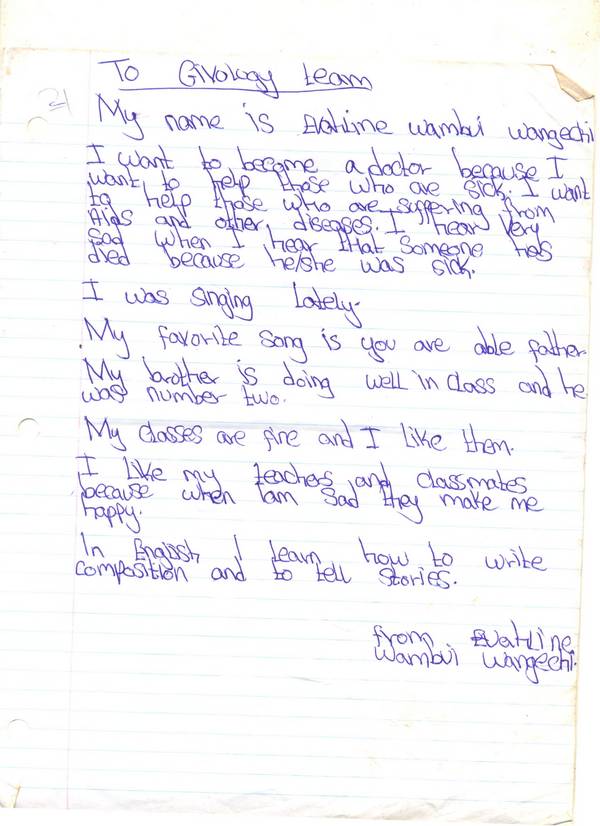 21
To Givology team
My name is Evahline Wambui Wangechi
I want to become a doctor because I
want to help those who are sick. I want
to help those who are suffering from
Aids and other diseases. I hear very
sad when I hear that someone has
died because he/she was sick.
I was singing lately.
My favorite song is you are able father.
My brother is doing well in class and he
was number two.
My classes are fine and I like them.
I like my teachers and classmates
because when I am sad they make me
happy.
In English I learn how to write
composition and to tell stories.
from Evahline
Wambui Wangechi.